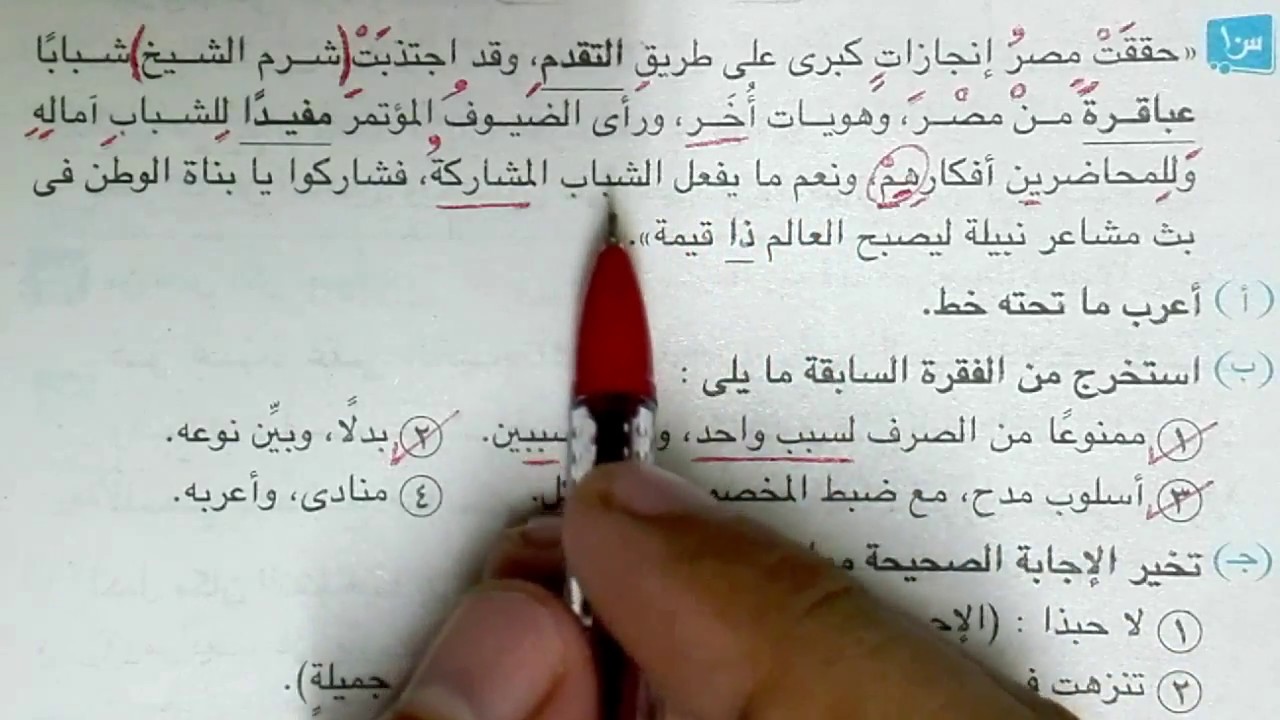 س١
«حققَتْ مصرُ إنجازاتٍ كبرى على طريقِ التقدمِ، وقد اجتذبَتْ (شرم الشيخ) شبابًا
عباقرةً منْ مصْرَ، وهويات أُخَر، ورأى الضيوفُ المؤتمرَ مفيدًا لِلشبابِ آمالهِ
وَلِلمحاضرين أفكارهِمْ، ونعم ما يفعل الشباب المشاركةُ، فشاركوا يا بناة الوطن فى
بث مشاعر نبيلة ليصبح العالم ذا قيمة».
(أ) أعرب ما تحته خط.
(ب) استخرج من الفقرة السابقة ما يلى :
١ ممنوعًا من الصرف لسبب واحد، و سببين. ٢ بدلًا، وبيِّن نوعه.
٣ أسلوب مدح، مع ضبط ٤ منادى، وأعربه.
(جـ) تخير الإجابة الصحيحة
١ لا حبذا :
٢ تنزهت جميلةٍ).